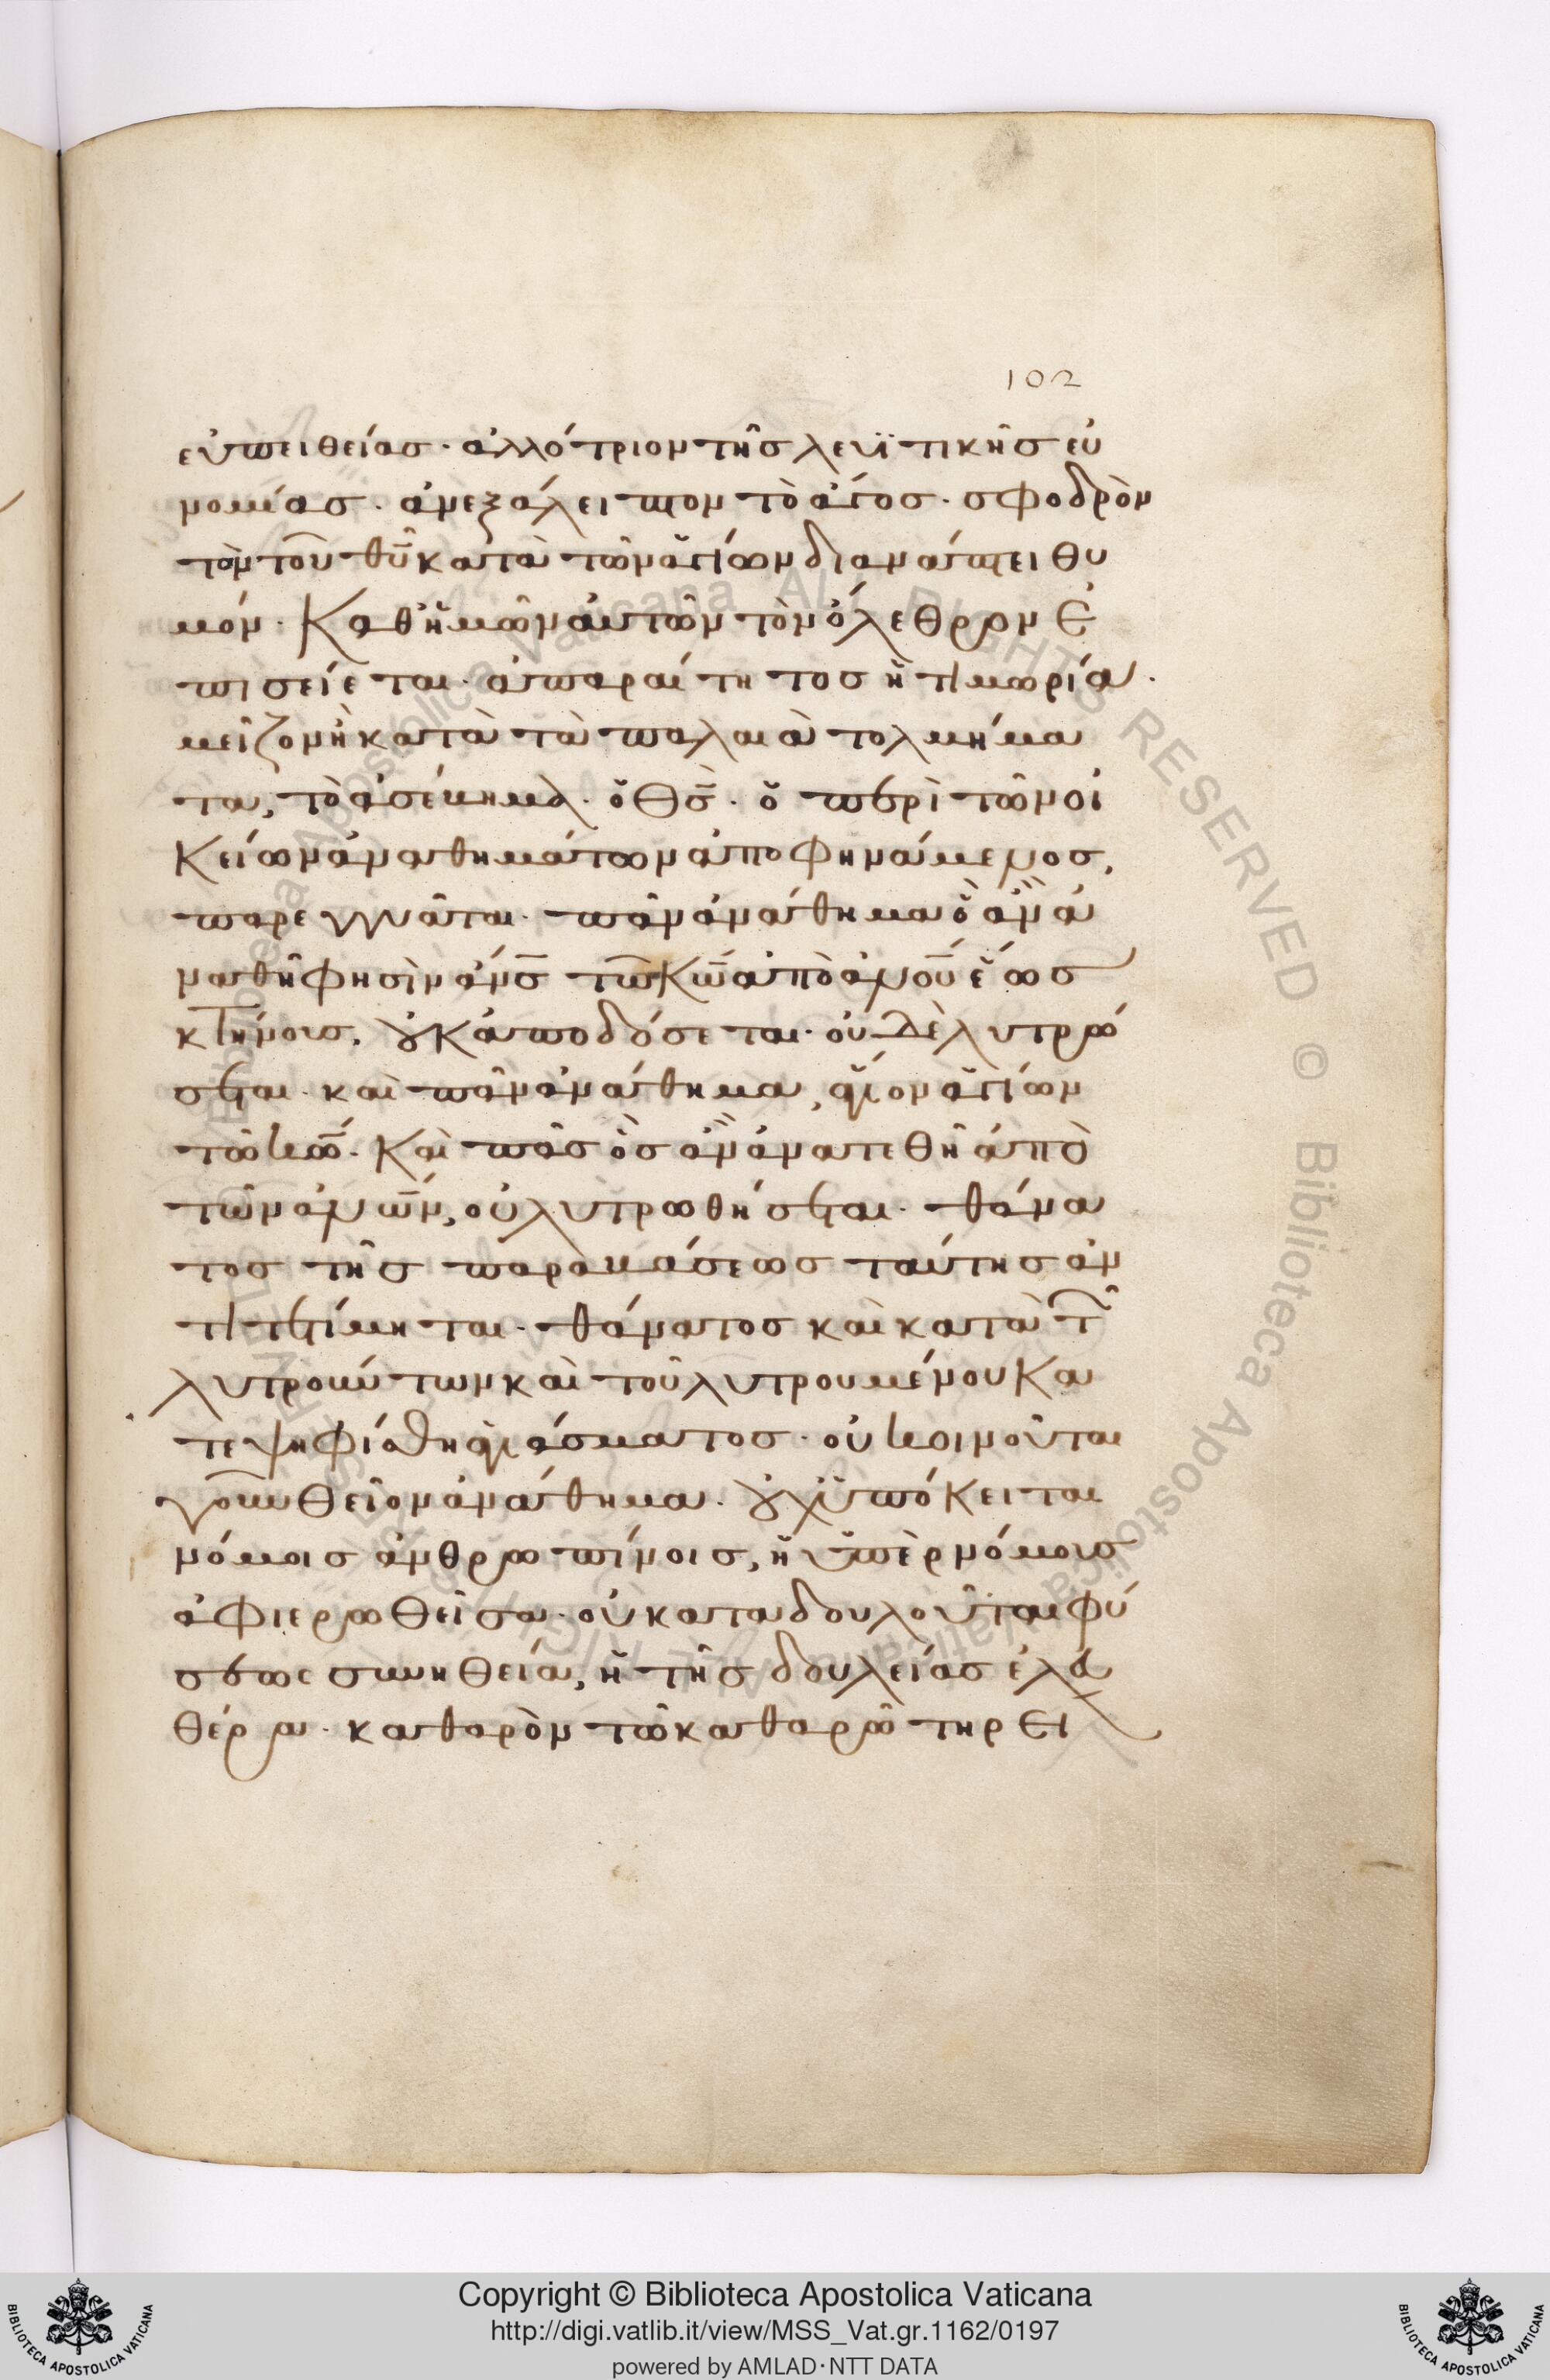 102
εὐπειθείας· ἀλλότριον τῆς λευϊτικῆς εὐ
νομίας· ἀνεξάλειπτον τὸ ἄγος· σφοδρὸν
τὸν τοῦ θῦ κατὰ τῶν ἁγίων διαμάπτει θυ
μόν· Καθ' ἡμῶν αὐτῶν τὸν ὄλεθρον ἐ
πισείεται· ἀπαραίτητος ἡ τιμωρία·
μεῖζον ἢ κατὰ τὰ παλαιὰ τολμήμα
τα, τὸ ἀσέβημα· ὁ θς· ὁ περὶ τῶν οἰ
κείων ἀναθημάτων ἀποφηνάμενος,
παρεγγυᾶται· πᾶν ἀνάθημα ὃ ἂν ἀ
ναθῇ φησὶν ἀνς τῷ κῶ ἀπὸ ανοῦ ἕως
κτήνους, οὐκ ἀποδώσεται· οὐδὲ λυτρώ
σεται· καὶ πᾶν ἀνάθημα, ἅγιον ἁγίων
τῷ κῶ. Καὶ πᾶς ὃς ἂν ἀνατεθῇ ἀπὸ
τῶν ανων, οὐ λυτρωθήσεται· θάνα
τος τῆς παραβάσεως ταύτης ἀν
τιτετίμηται· θάνατος καὶ κατὰ τ
λυτρούντων καὶ τοῦ λυτρουμένου κα
τεψηφίσθη ἁγιάσματος· οὐ κοινοῦται
γοῦν θεῖον ἀνάθημα· οὐχ ὑπόκειται
νόμοις ἀνθρωπίνοις, ἡ ὑπὲρ νόμους
ἀφιερωθεῖσα· οὐ καταδουλοῦται φύ
σεως συνηθεία, ἡ τῆς δουλείας ἐλευ
θέρα· καθαρὸν τῷ καθαρῷ τηρεῖ
Copyright © Biblioteca Apostolica Vaticana
http://digi.vatlib.it/view/MSS_Vat.gr.1162/0197
powered by AMLAD·NTT DATA